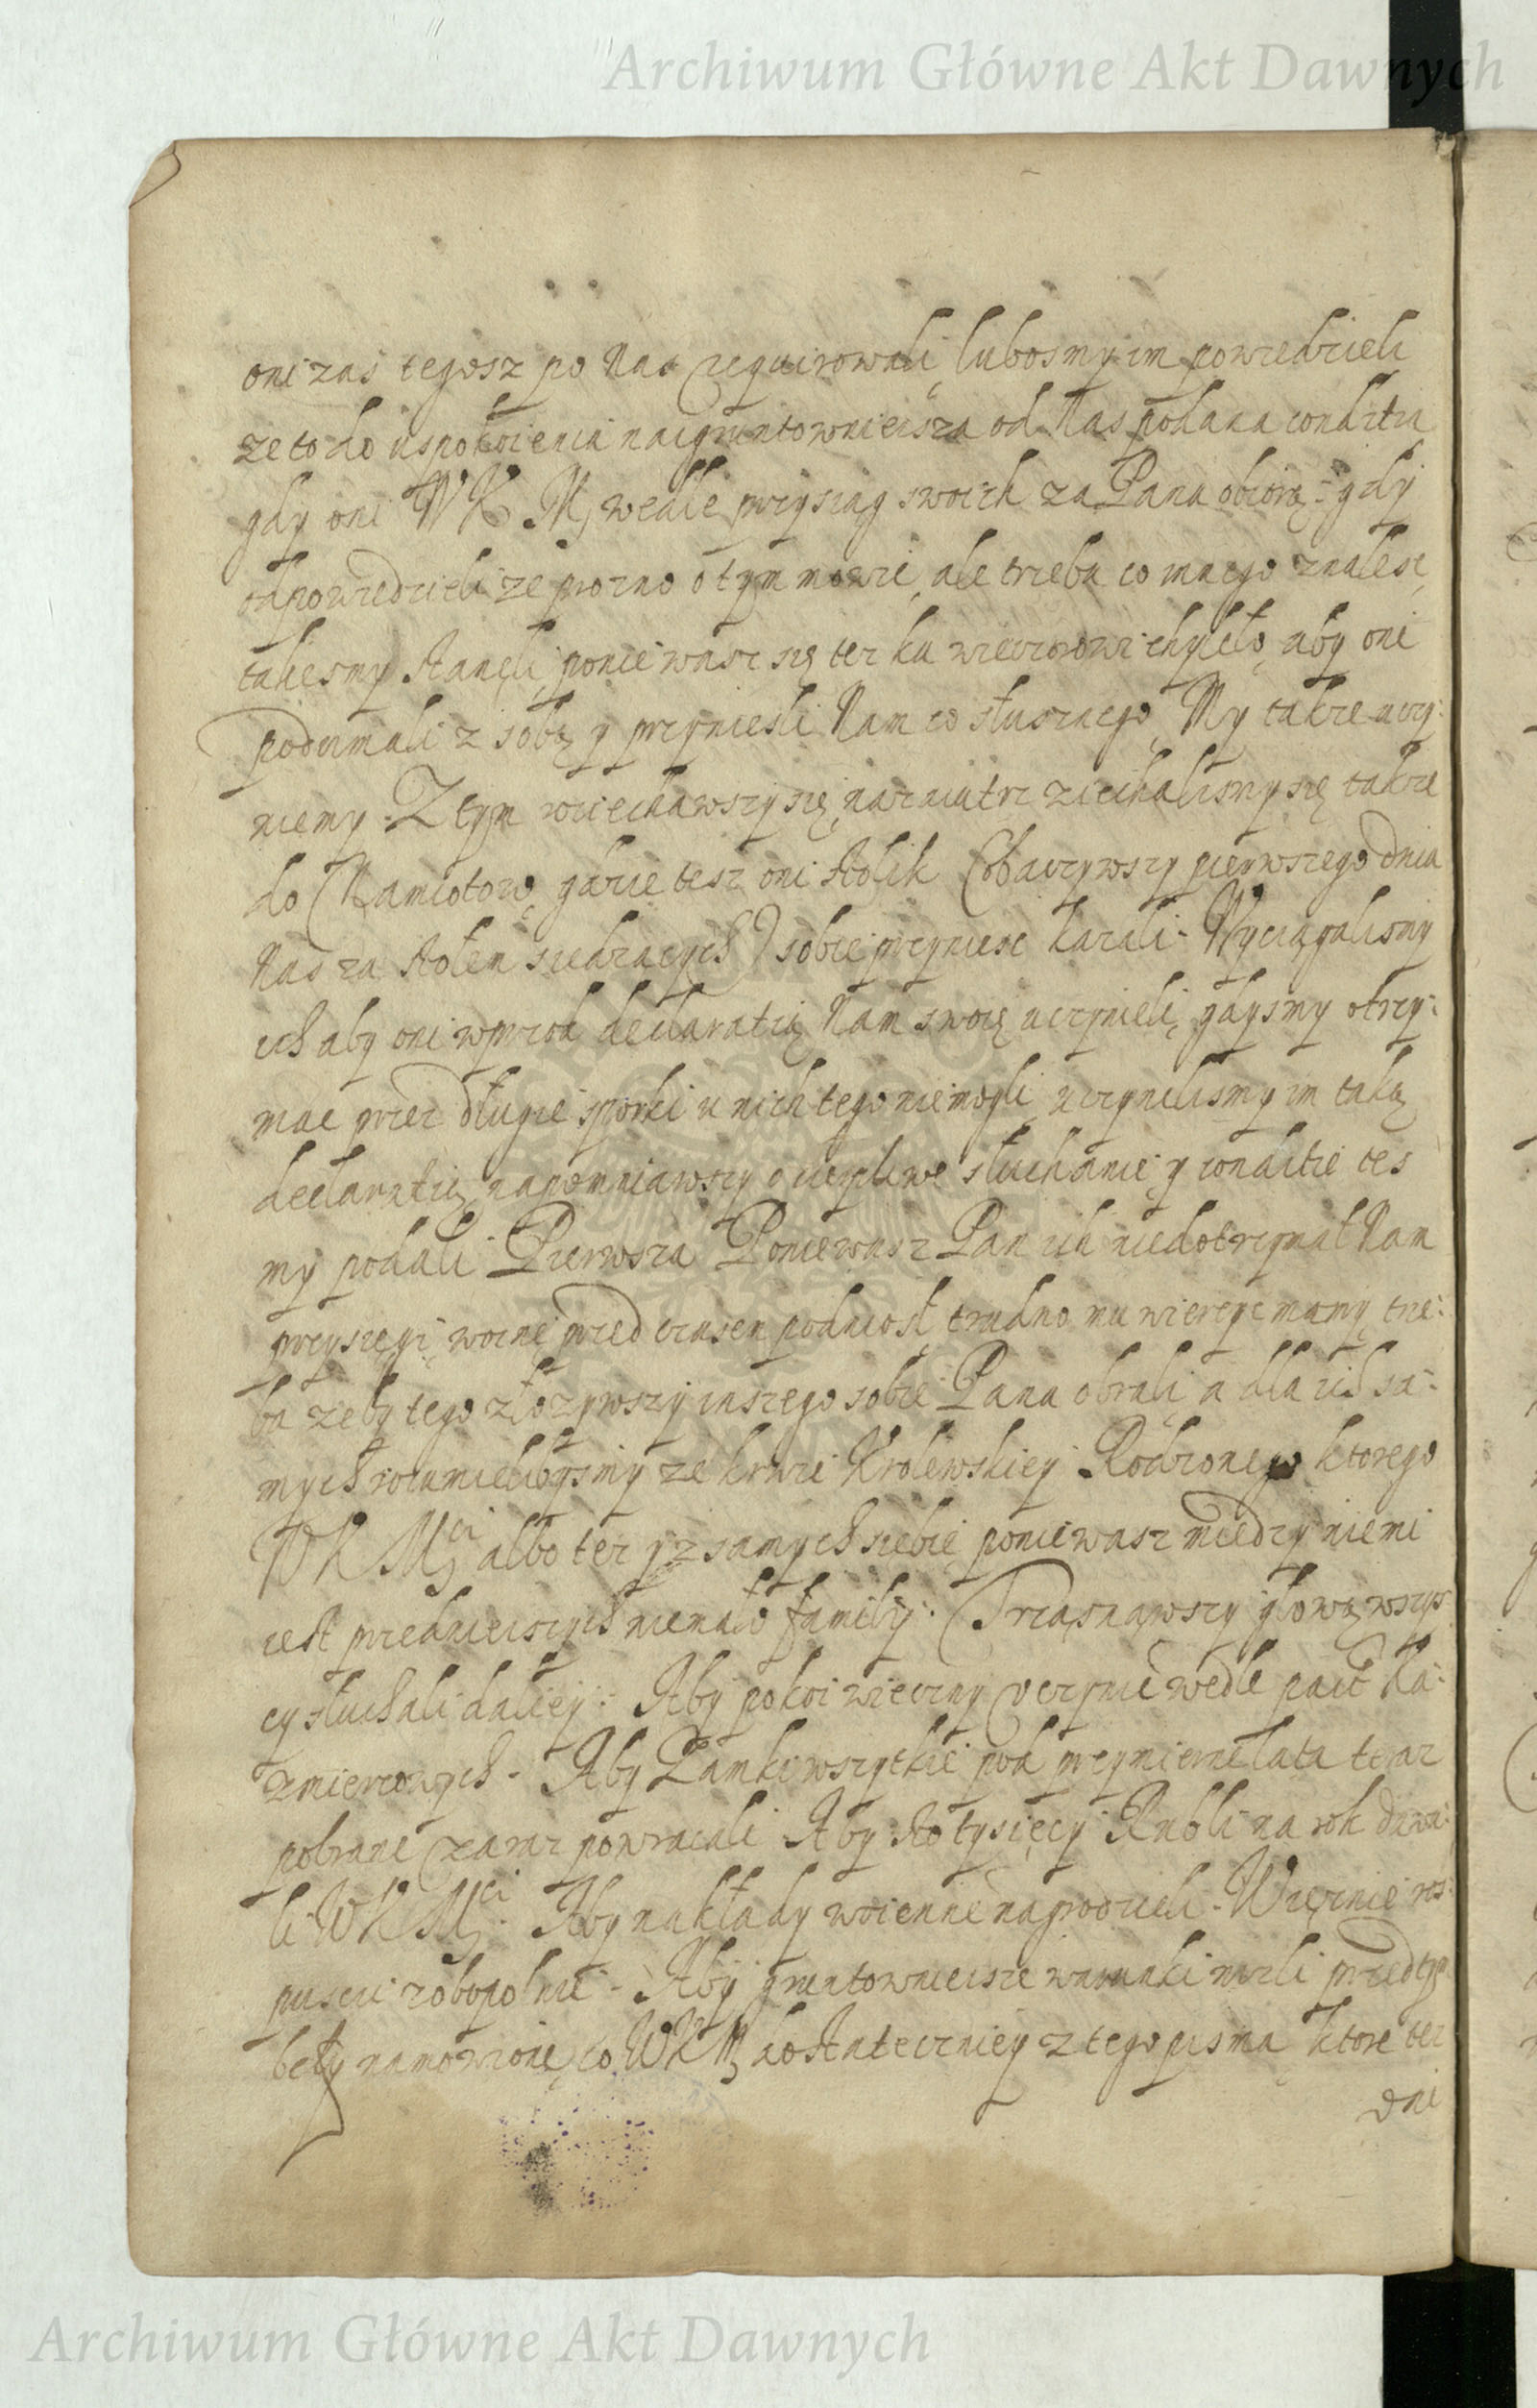 Archiwum Główne Akt Dawnych
oni zas tegosz po Nas requirowali, lubosmy im powiedzieli
ze to do uspokoienia naigruntownieisza od Nas podana conditia
gdy oni WKM wedle przysiąg swoich za Pana obiorą: gdy
odpowiedzieli ze prozno o tym mowic, ale trzeba co innego znalesc,
takesmy stanęli, poniewasz się tez ku wieczorowi chyleło, aby oni
podumali z sobą y przyniesli Nam co słusznego, My takze uczy:
niemy. Z tym roziechawszy się, nazaiutrz ziechalismy się takze
do Namiotow, gdzie tesz oni stolik (obaczywszy pierwszego dnia
Nas za stołem siedzących) sobie przyniesc kazali. Wyciągalismy
ich aby oni wprzod declaratią Nam swoię uczynieli, gdysmy otrzy:
mac przez długie sporki u nich tego niemogli, uczynilismy im taką
declaratię, napomniawszy o cierpliwe słuchanie, y conditie tes
my podali. Pierwsza Poniewasz Pan ich niedotrzymał Nam
przysięgi, woinę przed czasem podniosł, trudno mu wierzyc mamy, trze:
ba zeby tego złozywszy inszego sobie Pana obrali, a dla ich sa:
mych rozumielibysmy ze krwie Krolewskiey Rodzonego ktorego
WKMci albo tez y z samych siebie, poniewasz miedzy niemi
iest przednieiszych niemało familij. Trząsnąwszy głową wszys
cy słuchali daliey: Aby pokoi wieczny uczynic wedle pact Ka:
zmierzowych. Aby Zamki wszytkie pod przymierne lata teraz
pobrane zaraz powracali Aby sto tysięcy Rubli na rok dawa:
li WKMci. Aby nakłady woienne nagrodzieli. Więznie ros:
puscic zobopolnie. Aby gruntownieisze warunki nizli przedtym
beły namowione, co WKM dostateczniey z tego pisma ktore tez
dni
Archiwum Główne Akt Dawnych